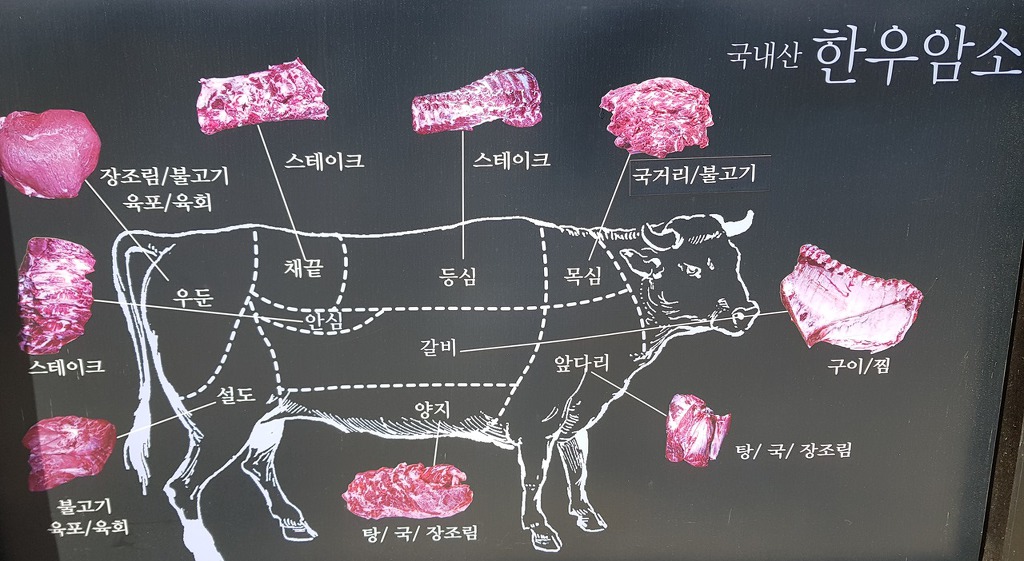 국내산 한우암소
스테이크
스테이크
국거리/불고기
장조림/불고기
육포/육회
채끝
등심
목심
우둔
안심
갈비
앞다리
구이/찜
스테이크
설도
양지
탕/ 국/ 장조림
불고기
육포/육회
탕/ 국/ 장조림